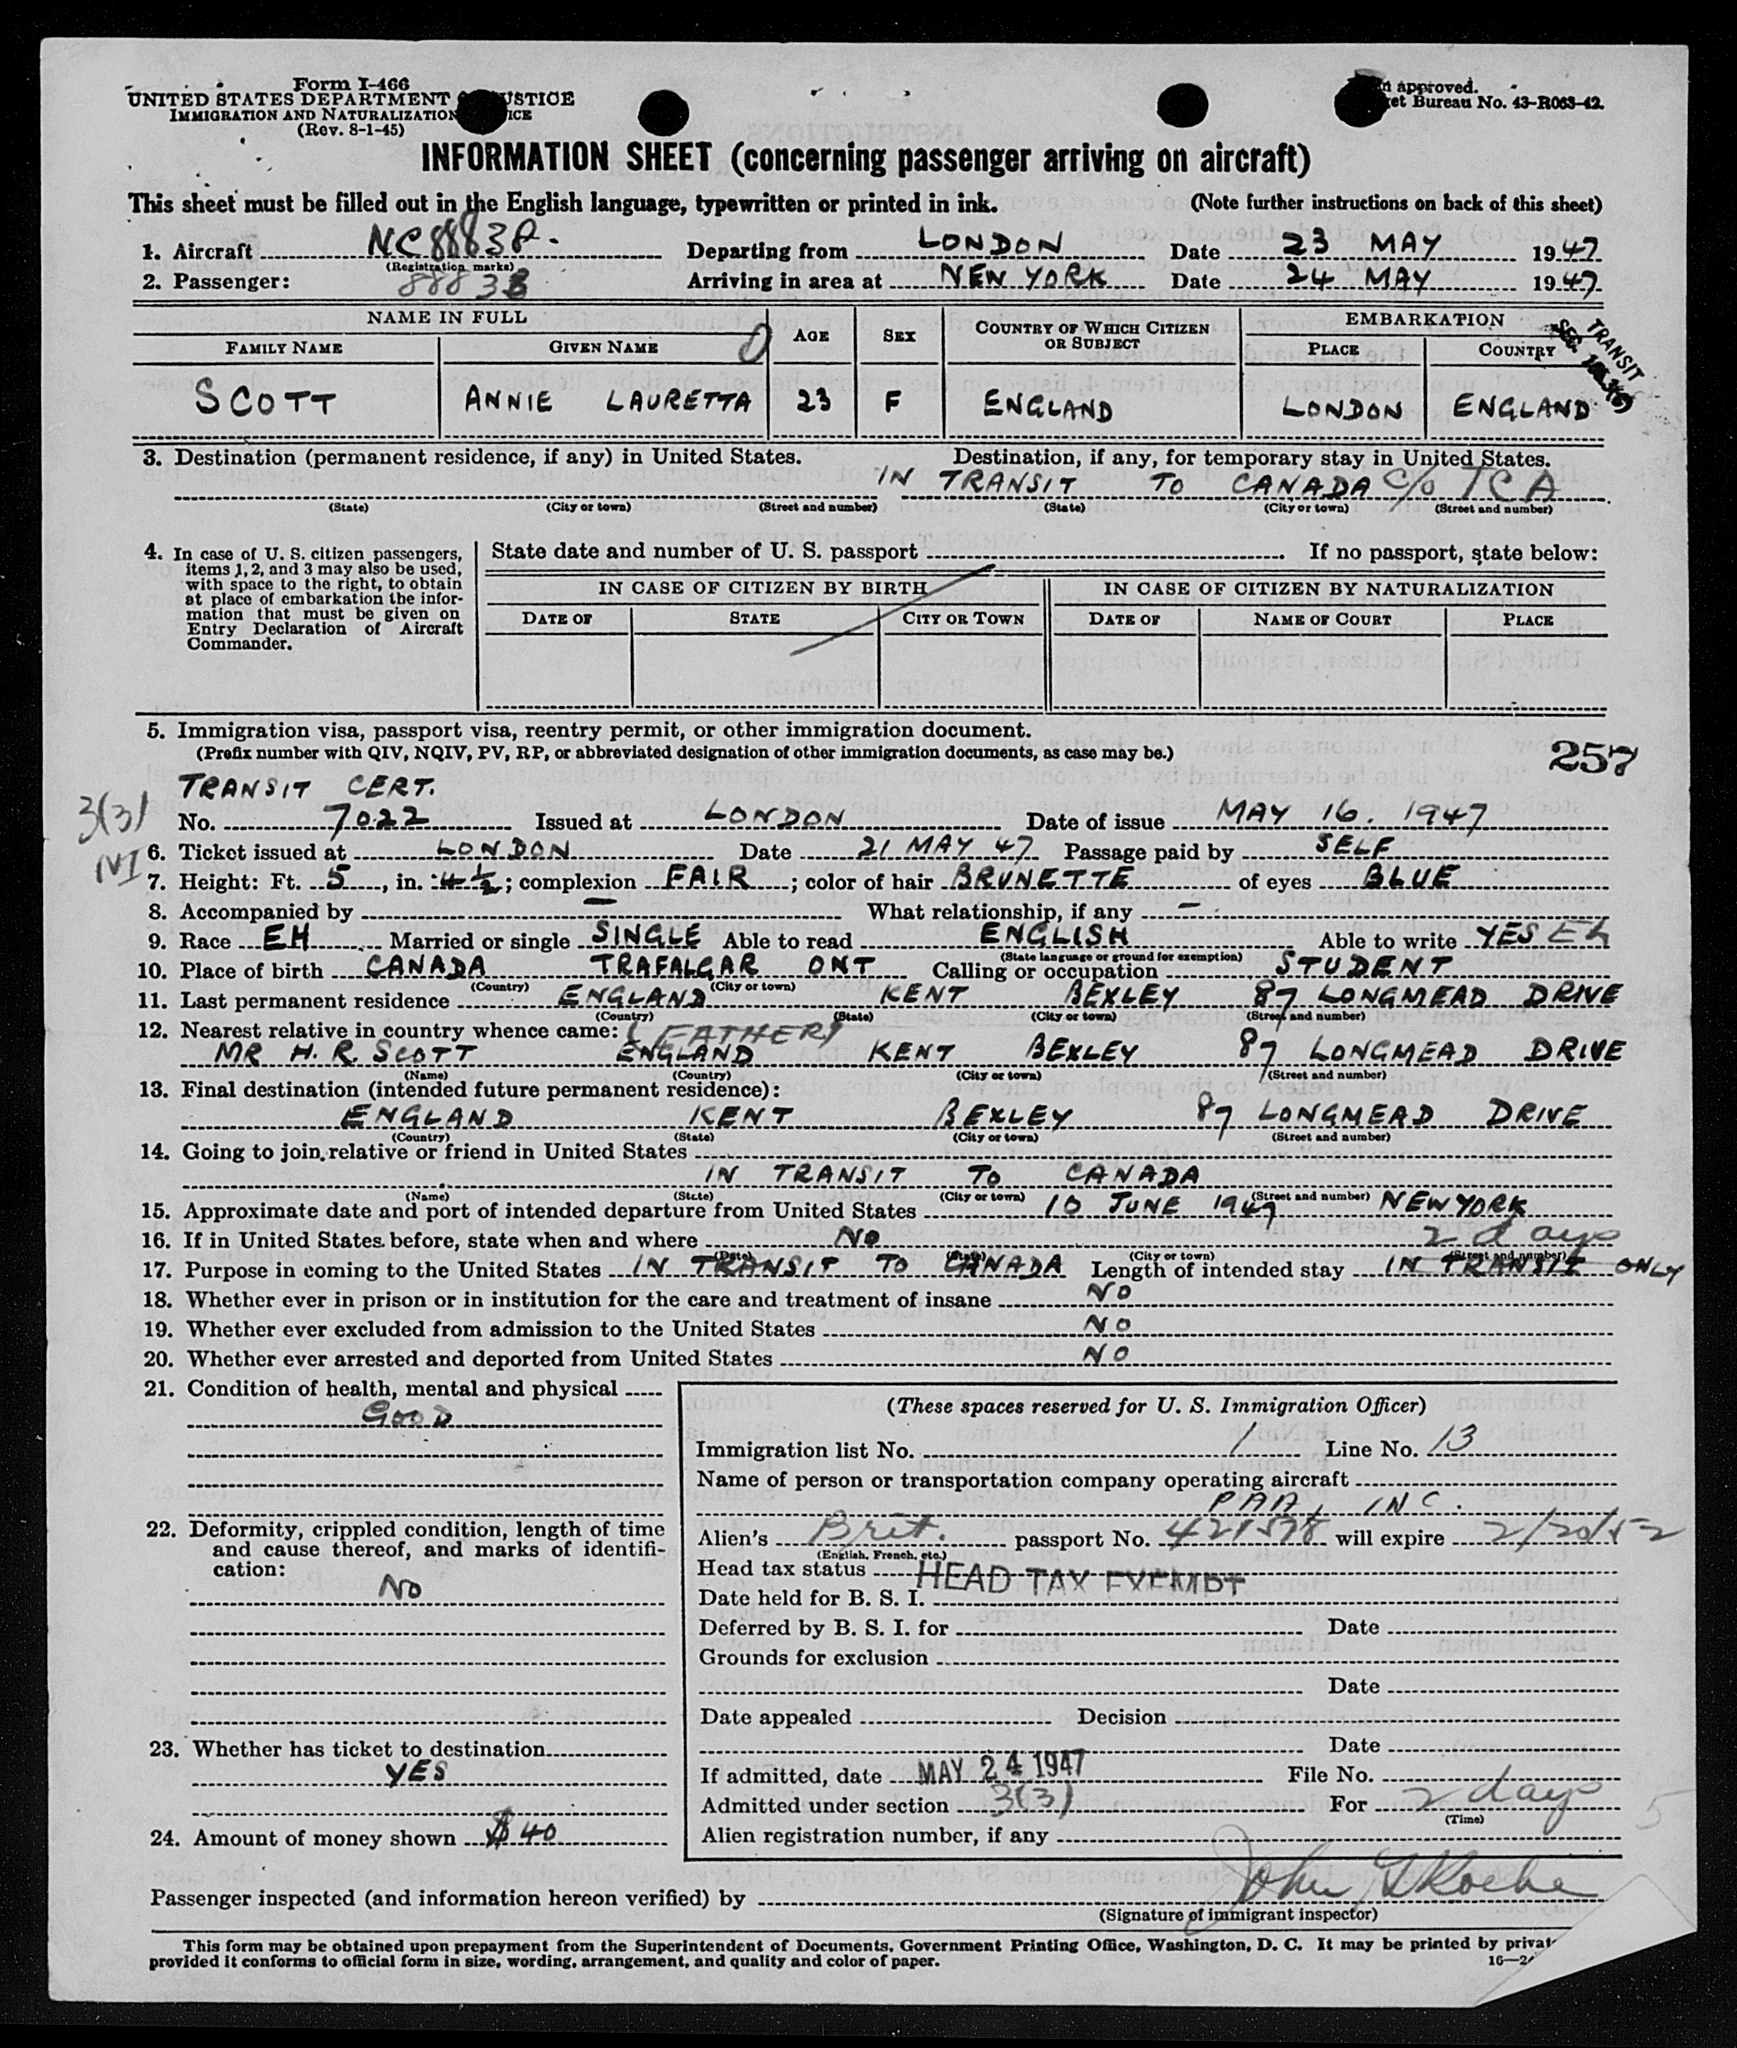 Form I-466
UNITED STATES DEPARTMENT USTICE
IMMIGRATION AND NATURALIZATION ICE
(Rev. 8-1-45)
approved.
et Bureau No. 43-R063-42.
INFORMATION SHEET (concerning passenger arriving on aircraft)
This sheet must be filled out in the English language, typewritten or printed in ink. (Note further instructions on back of this sheet)
1. Aircraft Departing from LONDON Date 23 MAY 1947
(Registration marks)
2. Passenger: 88838 Arriving in area at NEW YORK Date 24 MAY 1947
NAME IN FULL AGE SEX COUNTRY OF WHICH CITIZEN OR SUBJECT EMBARKATION
FAMILY NAME GIVEN NAME PLACE COUNTRY
TRANSIT
SCOTT ANNIE LAURETTA 23 F ENGLAND LONDON ENGLAND
3. Destination (permanent residence, if any) in United States. Destination, if any, for temporary stay in United States.
IN TRANSIT TO CANADA C/O TCA
(State) (City or town) (Street and number) (State) (City or town) (Street and number)
4. In case of U. S. citizen passengers, items 1, 2, and 3 may also be used, with space to the right, to obtain at place of embarkation the information that must be given on Entry Declaration of Aircraft Commander.
State date and number of U. S. passport If no passport, state below:
IN CASE OF CITIZEN BY BIRTH IN CASE OF CITIZEN BY NATURALIZATION
DATE OF STATE CITY OR TOWN DATE OF NAME OF COURT PLACE
5. Immigration visa, passport visa, reentry permit, or other immigration document.
(Prefix number with QIV, NQIV, PV, RP, or abbreviated designation of other immigration documents, as case may be.)
257
TRANSIT CERT.
3(3)
No. 7022 Issued at LONDON Date of issue MAY 16. 1947
6. Ticket issued at LONDON Date 21 MAY 47 Passage paid by SELF
7. Height: Ft. 5, in. 4½; complexion FAIR; color of hair BRUNETTE of eyes BLUE
8. Accompanied by — What relationship, if any —
9. Race EH Married or single SINGLE Able to read ENGLISH Able to write YES
(State language or ground for exemption)
10. Place of birth CANADA TRAFALGAR ONT Calling or occupation STUDENT
(Country) (City or town)
11. Last permanent residence ENGLAND KENT BEXLEY 87 LONGMEAD DRIVE
(Country) (State) (City or town) (Street and number)
12. Nearest relative in country whence came: (FATHER)
MR H. R. SCOTT ENGLAND KENT BEXLEY 87 LONGMEAD DRIVE
(Name) (Country) (City or town) (Street and number)
13. Final destination (intended future permanent residence):
ENGLAND KENT BEXLEY 87 LONGMEAD DRIVE
(Country) (State) (City or town) (Street and number)
14. Going to join relative or friend in United States
IN TRANSIT TO CANADA
(Name) (State) (City or town) (Street and number)
15. Approximate date and port of intended departure from United States 10 JUNE 1947 NEW YORK
16. If in United States before, state when and where NO
(Date) (State) (City or town) (Street and number)
2 days
17. Purpose in coming to the United States IN TRANSIT TO CANADA Length of intended stay IN TRANSIT ONLY
18. Whether ever in prison or in institution for the care and treatment of insane NO
19. Whether ever excluded from admission to the United States NO
20. Whether ever arrested and deported from United States NO
21. Condition of health, mental and physical
GOOD
22. Deformity, crippled condition, length of time and cause thereof, and marks of identification:
NO
23. Whether has ticket to destination
YES
24. Amount of money shown $40
(These spaces reserved for U. S. Immigration Officer)
Immigration list No. 1 Line No. 13
Name of person or transportation company operating aircraft
PAA, INC.
Alien's Brit. passport No. 421578 will expire 2/20/52
(English, French, etc.)
Head tax status HEAD TAX EXEMPT
Date held for B. S. I.
Deferred by B. S. I. for Date
Grounds for exclusion
Date
Date appealed Decision
Date
If admitted, date MAY 24 1947 File No.
Admitted under section 3(3) For 2 days
(Time)
5
Alien registration number, if any
Passenger inspected (and information hereon verified) by John
(Signature of immigrant inspector)
This form may be obtained upon prepayment from the Superintendent of Documents, Government Printing Office, Washington, D. C. It may be printed by privat
provided it conforms to official form in size, wording, arrangement, and quality and color of paper. 16—24